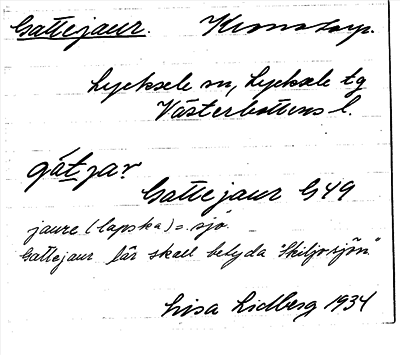 Gattejaur. Kronotorp.
Lycksele sn, Lycksele tg
Västerbottens l.
gát̲jar
Gattejaur G49
jaure (lapska) = sjö.
Gattejaur lär skall betyda "Skiljosjön"
Lisa Lidberg 1934